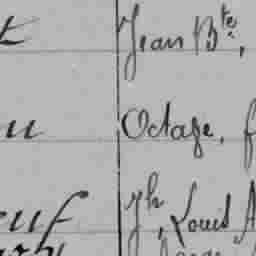 t Jean Bte,
u Octave, f
euf Jh, Louis A